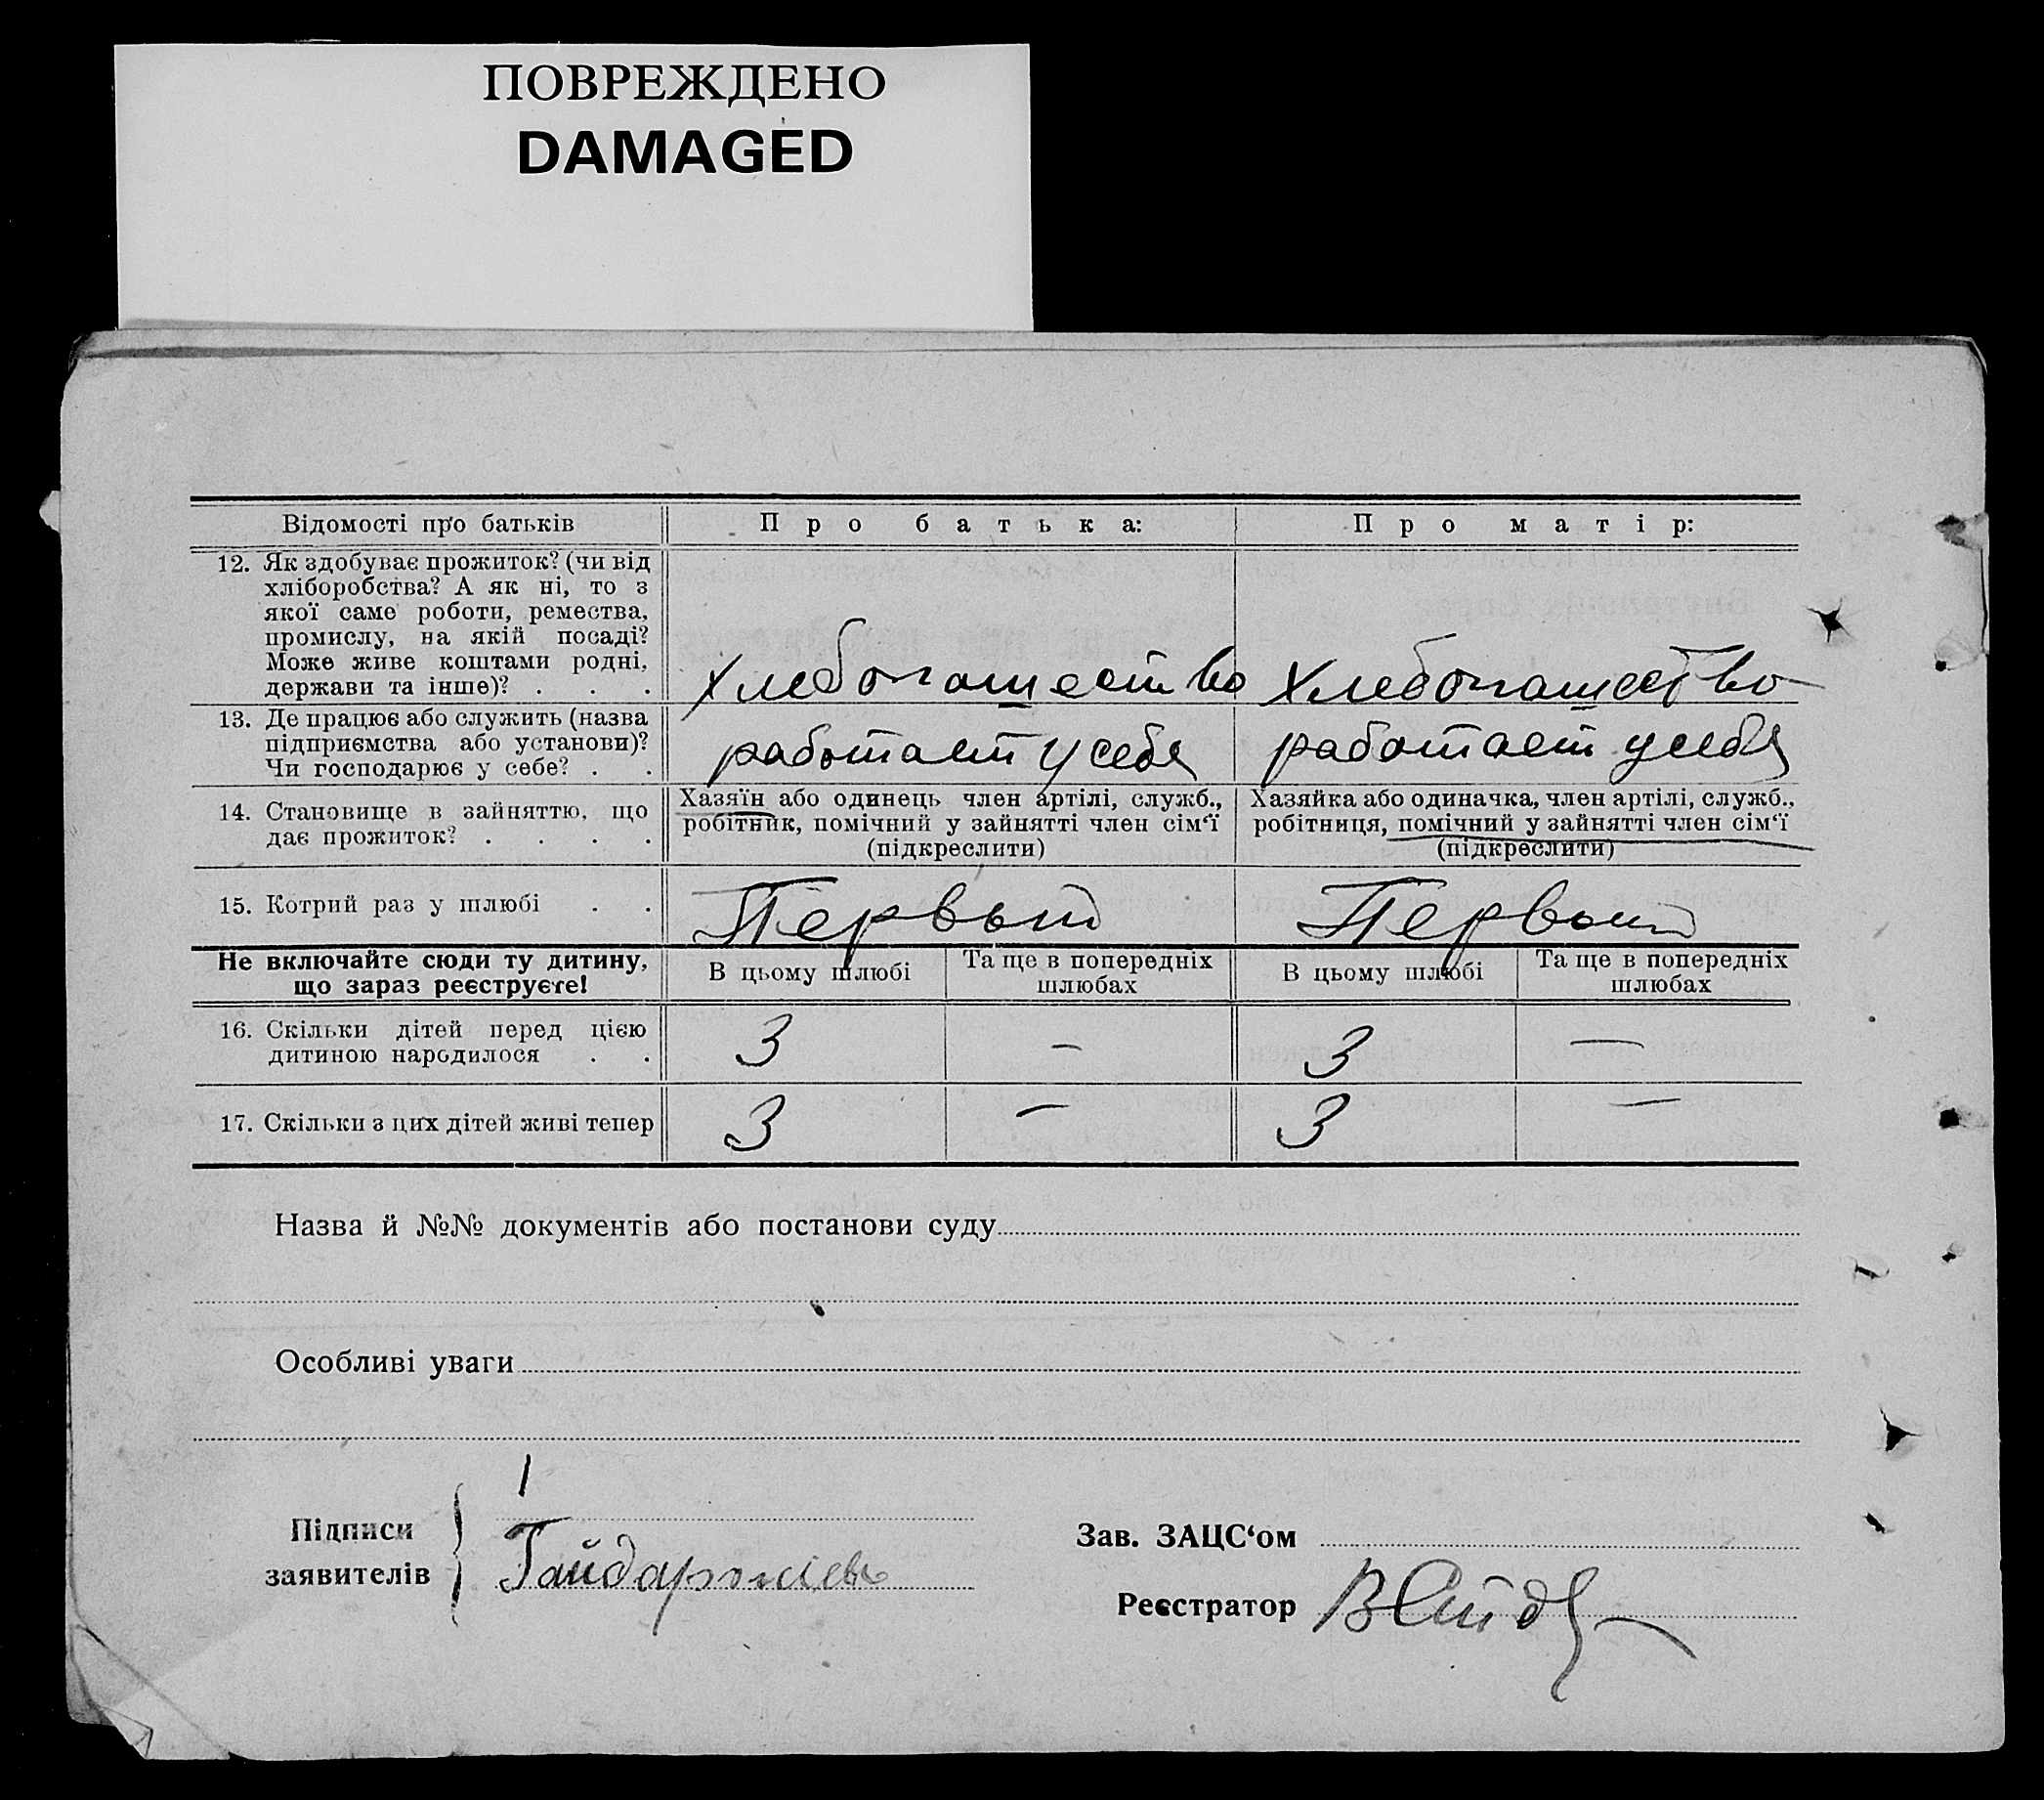 ПОВРЕЖДЕНО
DAMAGED
Відомості про батьків
Про батька:
Про матір:
12. Як здобуває прожиток? (чи від
хліборобства? А як ні, то з
якої саме роботи, ремества,
промислу, на якій посаді?
Може живе коштами родні,
держави та інше)? . . .
Хлебопашество
Хлебопашество
13. Де працює або служить (назва
підприємства або установи)?
Чи господарює у себе? . .
работает у себя
работает у себя
14. Становище в зайняттю, що
дає прожиток? . . . .
Хазяїн або одинець член артілі, служб.,
робітник, помічний у зайнятті член сім‘ї
(підкреслити)
Хазяйка або одиначка, член артілі, служб.,
робітниця, помічний у зайнятті член сім‘ї
(підкреслити)
15. Котрий раз у шлюбі . .
Первый
Первый
Не включайте сюди ту дитину,
що зараз реєструєте!
В цьому шлюбі
Та ще в попередніх
шлюбах
В цьому шлюбі
Та ще в попередніх
шлюбах
16. Скільки дітей перед цією
дитиною народилося . .
3
—
3
—
17. Скільки з цих дітей живі тепер
3
—
3
—
Назва й №№ документів або постанови суду
Особливі уваги
Підписи
заявителів
Зав. ЗАЦС‘ом
Реєстратор